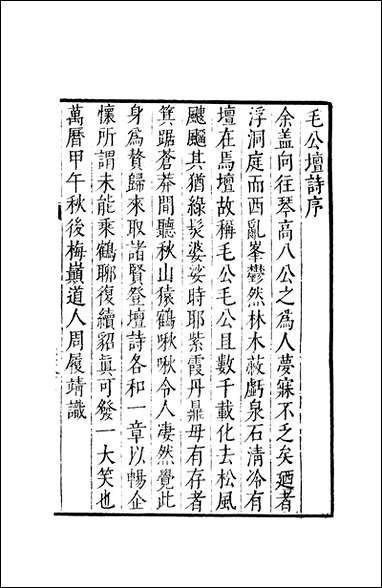 毛公壇詩序
余盖向往琴高八公之為人夢寐不乏矣廼者
浮洞庭而西亂峯鬱然林木蔽虧泉石清冷有
壇在焉壇故稱毛公毛公且數千載化去松風
颸颸其猶綠髮婆娑時耶紫霞丹鼎毋有存者
箕踞蒼莽間聽秋山猿鶴啾啾令人凄然覺此
身為贅歸來取諸賢登壇詩各和一章以暢企
懷所謂未能乘鶴聊復續貂眞可發一大笑也
萬曆甲午秋後梅巔道人周履靖識